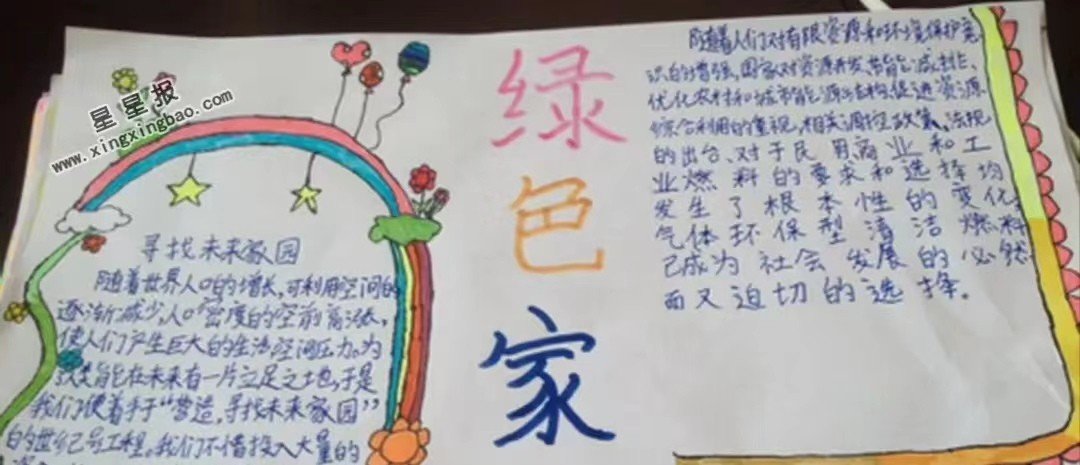 星星报
www.xingxingbao.com
绿
色
家
寻找未来家园
随着世界人口的增长,可利用空间的
逐渐减少,人口密度的空前高涨,
使人们产生巨大的生活空间压力。为
能在未来有一片立足之地,于是
我们便着手于“营造,寻找未来家园”
的世纪号工程。我们不惜投入大量的
随着人们对有限资源和环境保护意
识的增强,国家对资源开发,节能减排、
优化农村和城市能源结构,促进资源
综合利用的重视,相关调控政策、法规
的出台、对于民用商业和工
业燃料的要求和选择均
发生了根本性的变化,
气体环保型清洁燃料
已成为社会发展的必然
而又迫切的选择.